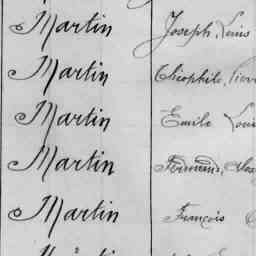 Martin Joseph, Louis
Martin Théophile, Pierre
Martin Emile Louis
Martin Fernand, Alex
Martin François
Martin